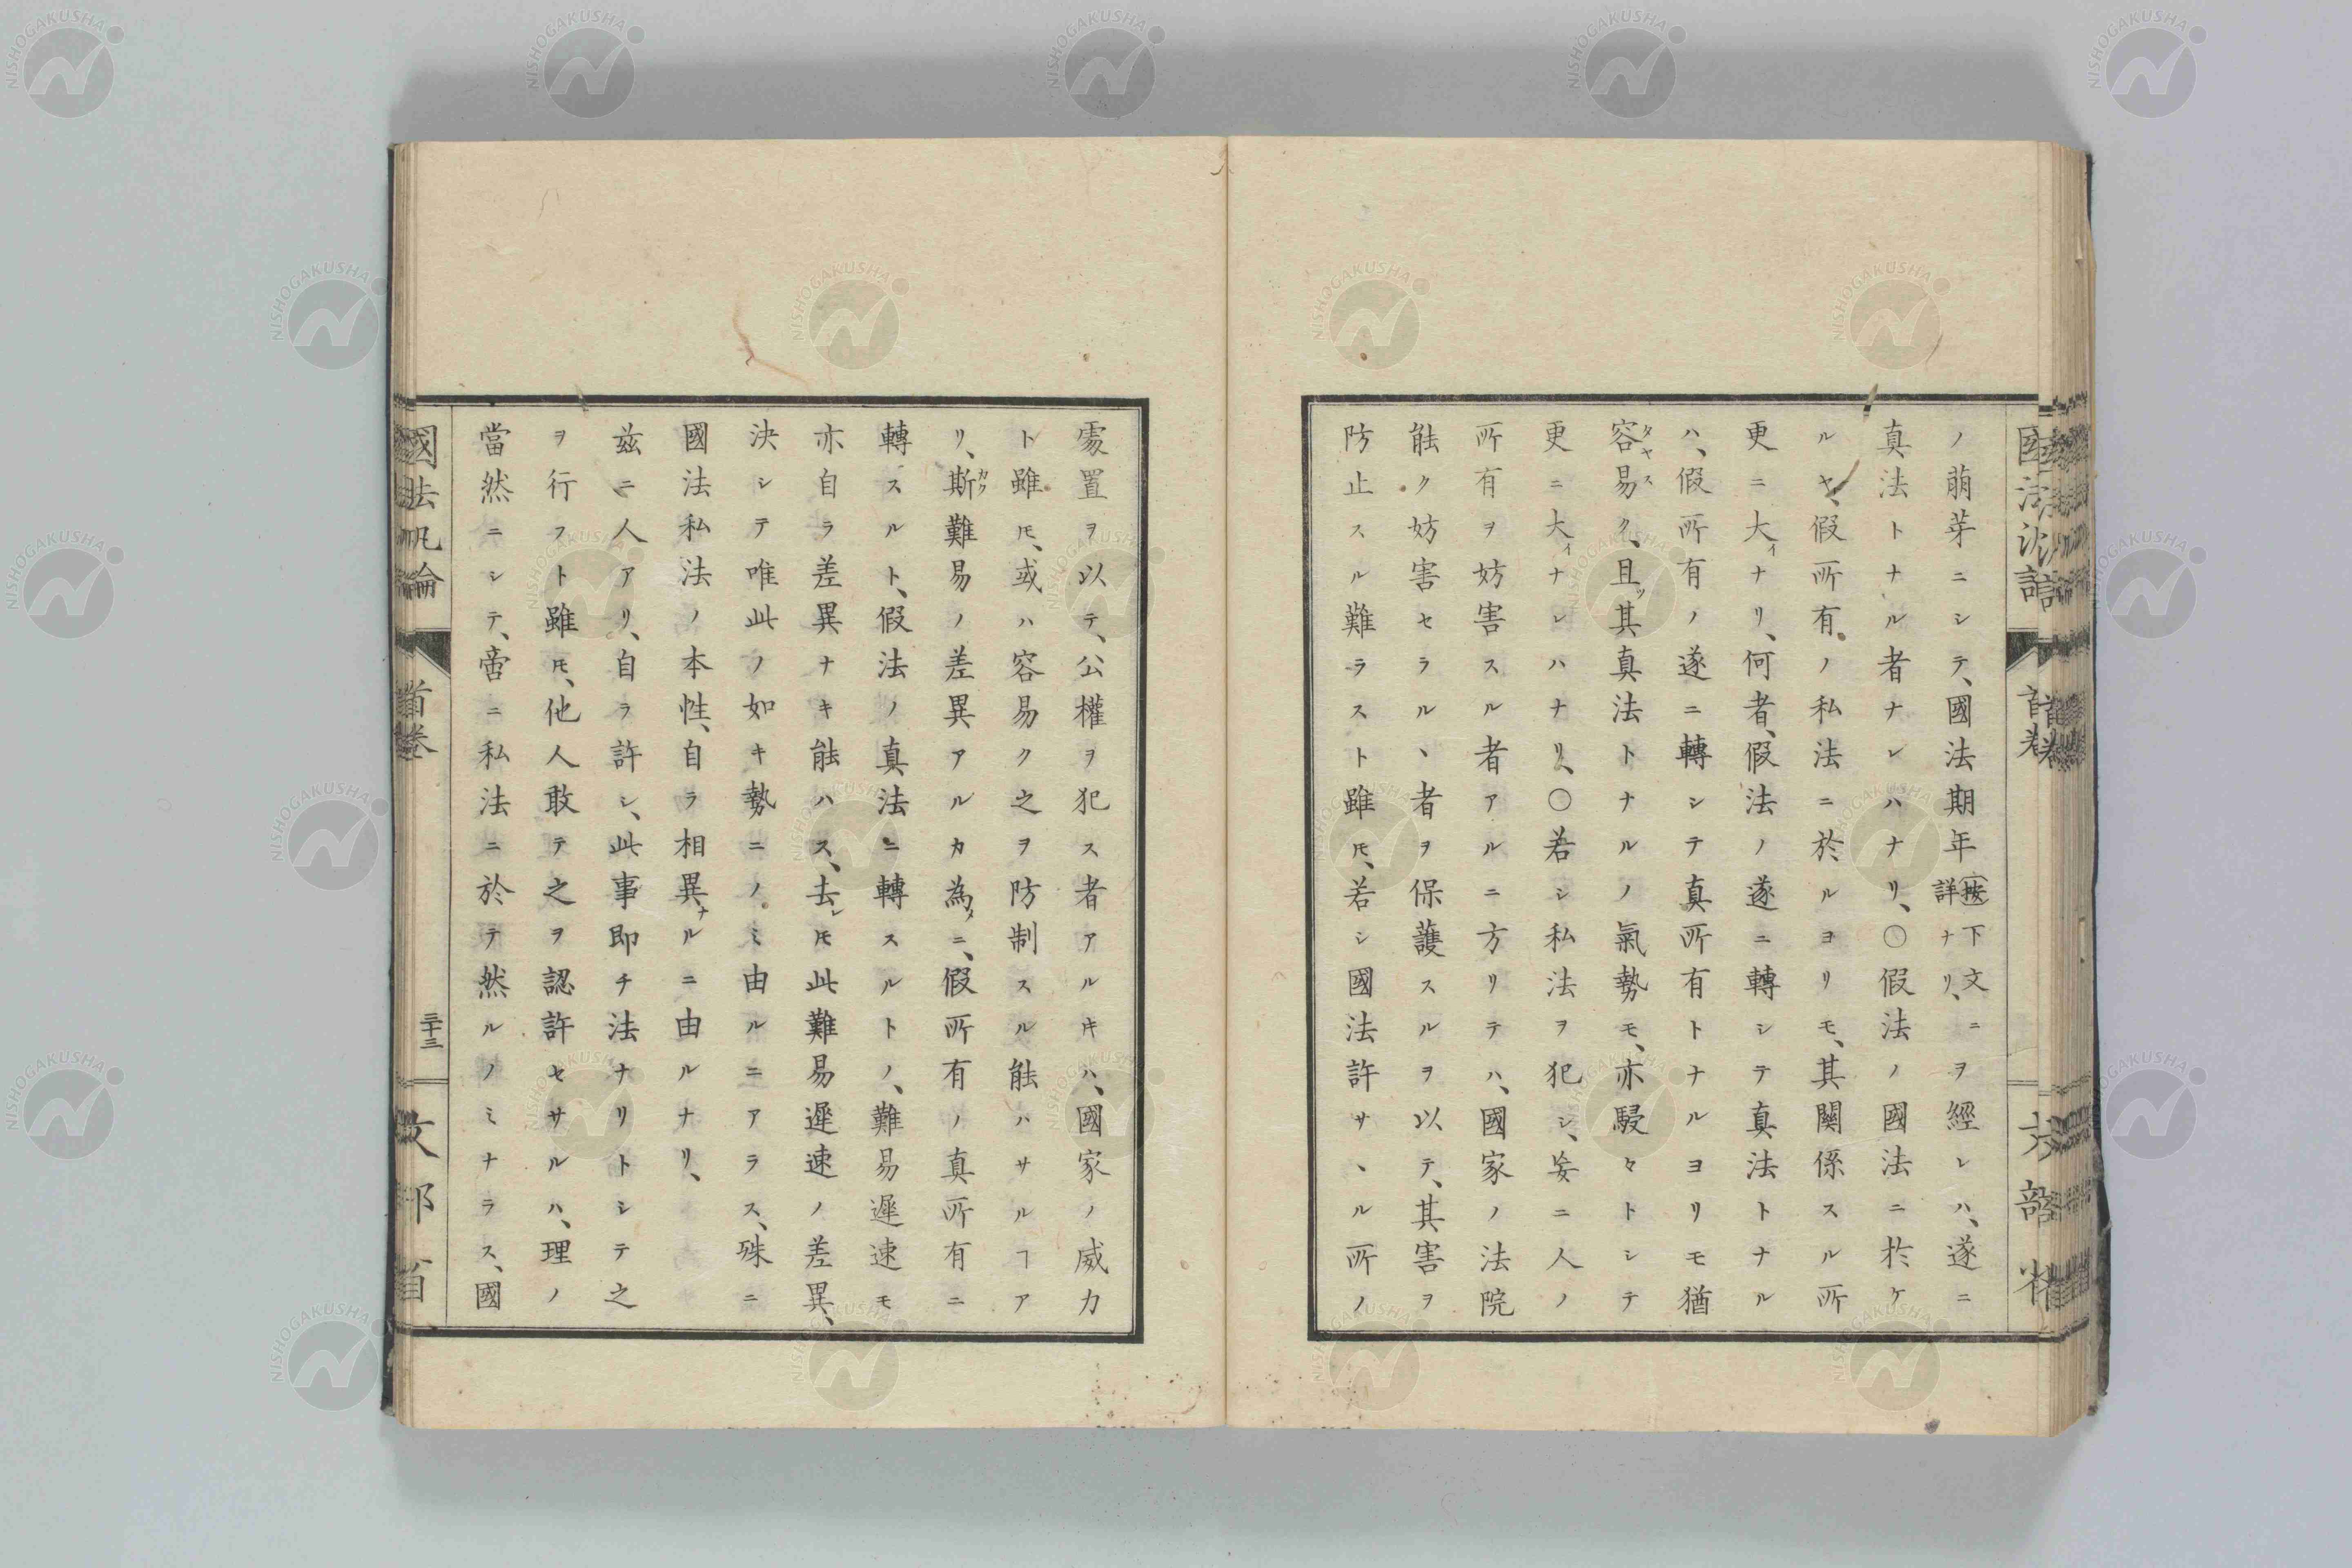 ノ萠芽ニシテ、國法期年(按下文ニ詳ナリ、)ヲ經レハ、遂ニ
真法トナル者ナレハナリ、〇假法ノ國法ニ於ケ
ルヤ、假所有ノ私法ニ於ルヨリモ、其関係スル所
更ニ大イナリ、何者、假法ノ遂ニ轉シテ真法トナル
ハ、假所有ノ遂ニ轉シテ真所有トナルヨリモ猶
容易タヤスク、且ツ其真法トナルノ氣勢モ、亦駸々トシテ
更ニ大イナレハナリ、〇若シ私法ヲ犯シ、妄ニ人ノ
所有ヲ妨害スル者アルニ方リテハ、國家ノ法院
能ク妨害セラルヽ者ヲ保護スルヲ以テ、其害ヲ
防止スル難ラスト雖𪜈、若シ國法許サヽル所ノ
國法汎論 首巻 文部省
處置ヲ以テ、公權ヲ犯ス者アルキハ、國家ノ威力
ト雖𪜈、或ハ容易ク之ヲ防制スル能ハサルヿア
リ、斯カク難易ノ差異アルカ為メニ、假所有ノ真所有ニ
轉スルト、假法ノ真法ニ轉スルトノ、難易遲速モ
亦自ラ差異ナキ能ハス、去レ𪜈此難易遲速ノ差異、
決シテ唯此ノ如キ勢ニノミ由ルニアラス、殊ニ
國法私法ノ本性、自ラ相異ナルニ由ルナリ、
茲ニ人アリ、自ラ許シ、此事即チ法ナリトシテ之
ヲ行フト雖𪜈、他人敢テ之ヲ認許セサルハ、理ノ
當然ニシテ、啻ニ私法ニ於テ然ルノミナラス、國
國法汎論 首巻 三十三 文部省
NISHOGAKUSHA